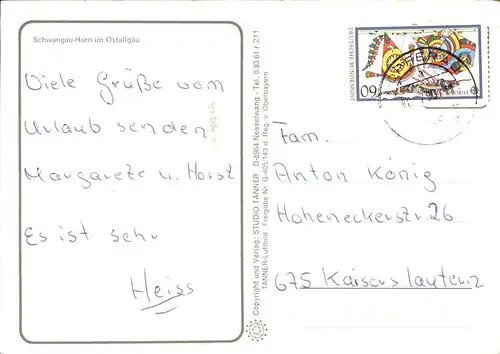 Schwangau-Horn im Ostallgäu
Viele Grüße vom
Urlaub senden
Margarete u. Horst
Es ist sehr
Heiss
Copyright und Verlag: STUDIO TANNER · D-8964 Nesselwang · Tel. 0 83 61 / 211
TANNER-Luftbild Freigabe Nr. G-405/143 d. Reg. v. Oberbayern
DEUTSCHE BUNDESPOST
60
EUROPA
Fam.
Anton König
Hoheneckerstr. 26
675 Kaiserslautern 2